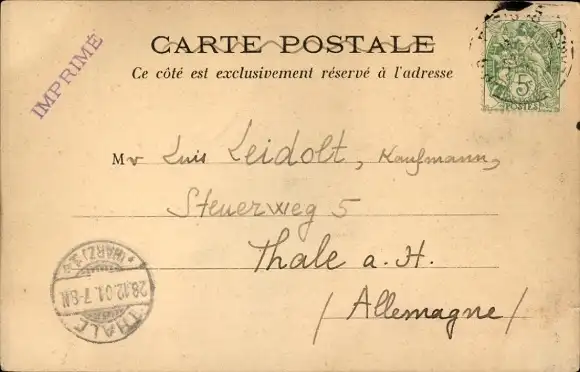 IMPRIMÉ
CARTE POSTALE
Ce côté est exclusivement réservé à l'adresse
5
POSTES
Mr Luis Leidolt, Kaufmann,
Steuerweg 5
Thale a. H.
/ Allemagne /
THALE
28.12.01. 7-8.N.
(HARZ)